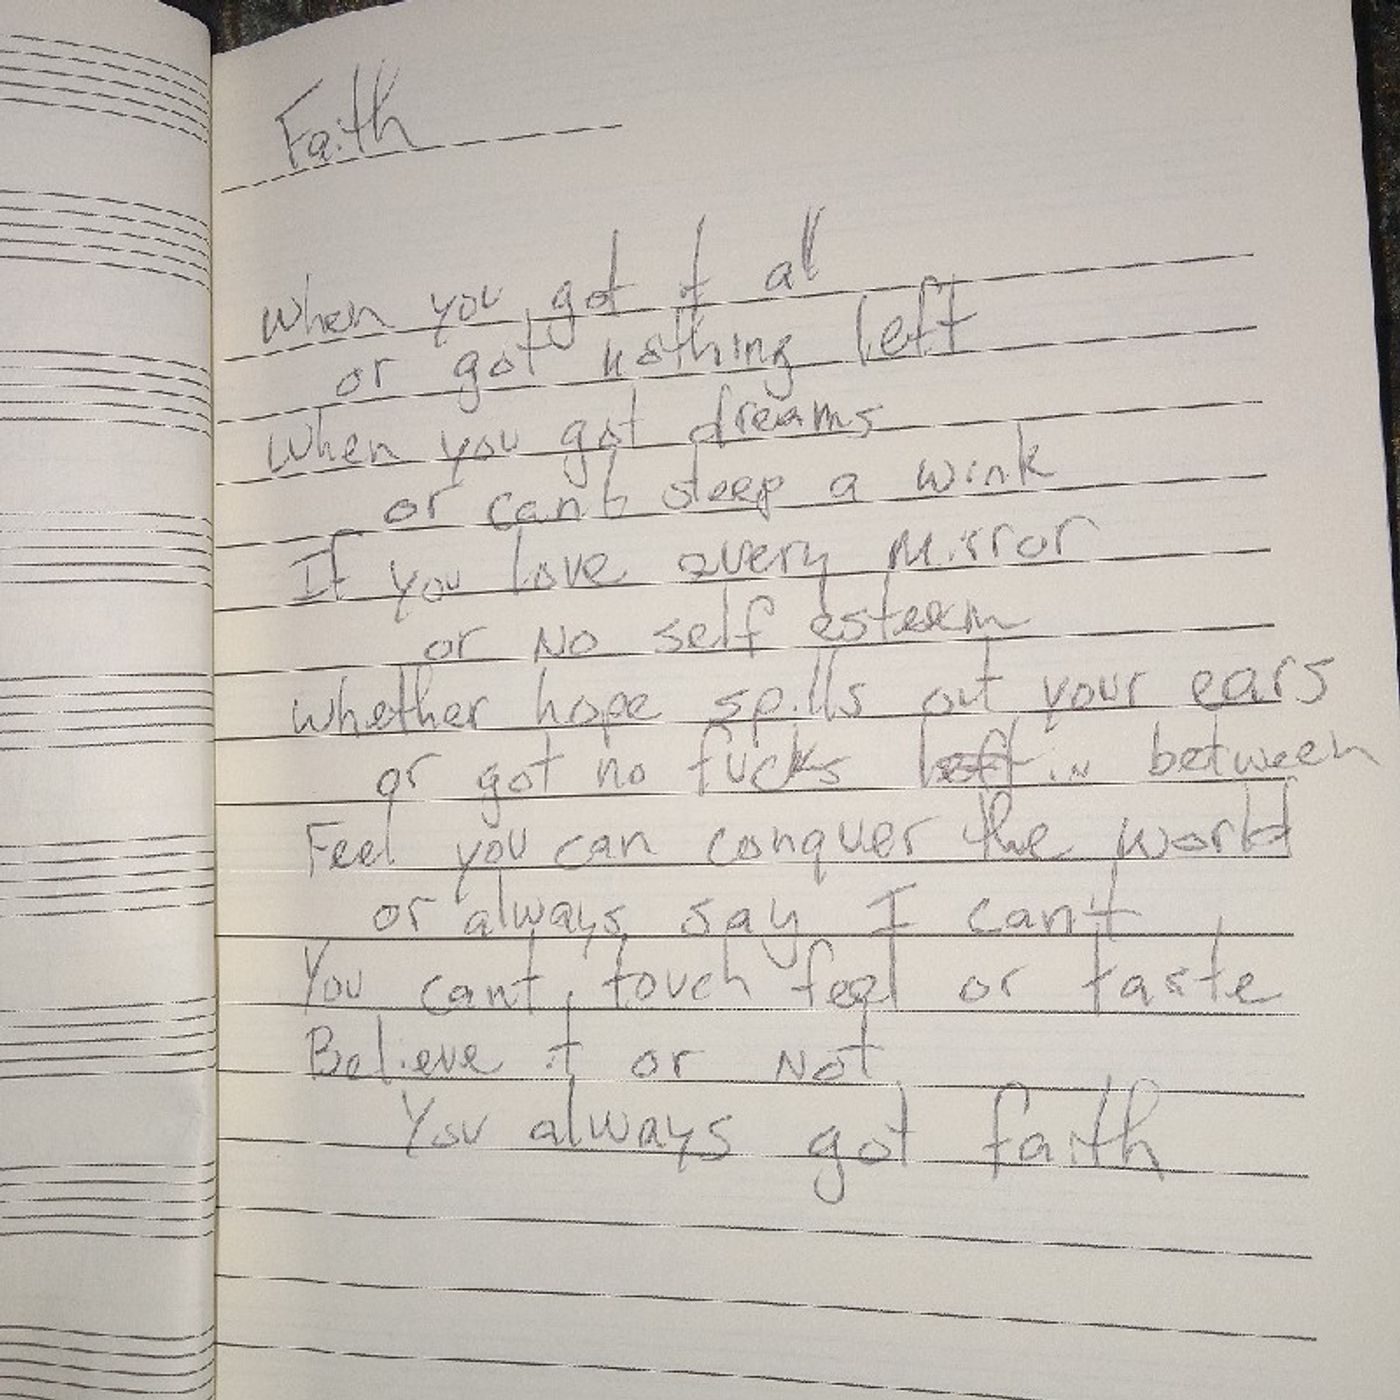 Faith
When you got it all
or got nothing left
When you got dreams
or can't sleep a wink
If you love every Mirror
or No self esteem
Whether hope spills out your ears
or got no fucks left in between
Feel you can conquer the world
or always say I can't
You cant touch feel or taste
Believe it or Not
You always got faith